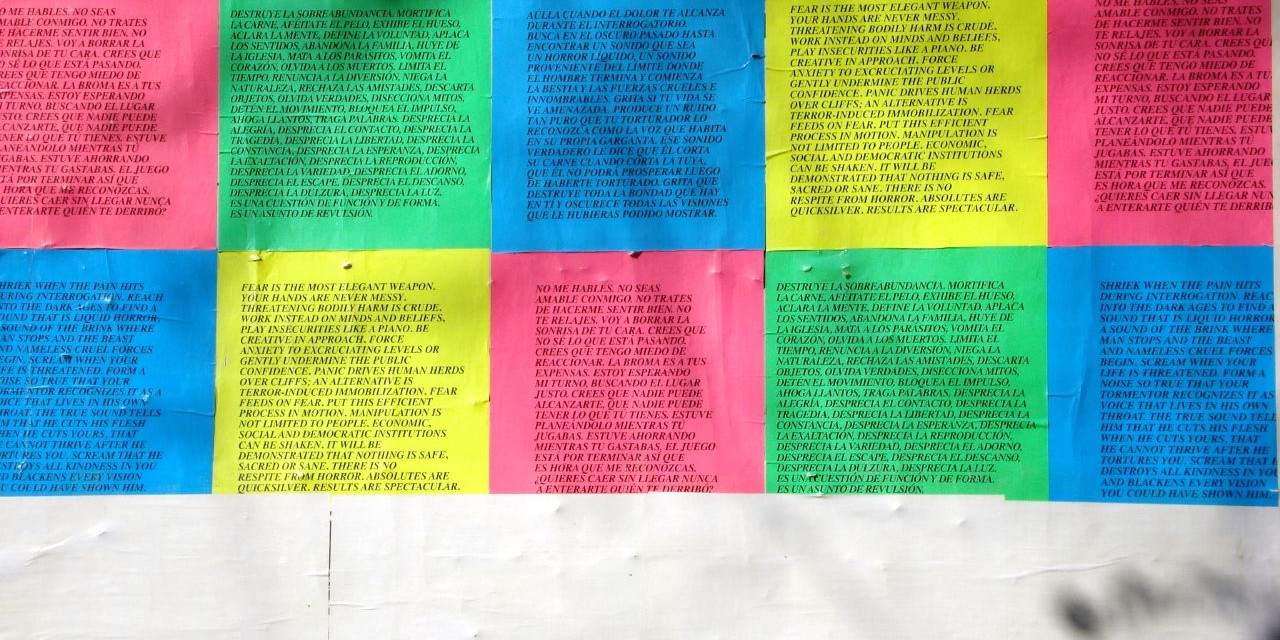 ME HABLES. NO SEAS
AMABLE CONMIGO. NO TRATES
DE HACERME SENTIR BIEN. NO
RELAJES. VOY A BORRAR LA
DE TU CARA. CREES QUE
SÉ LO QUE ESTÁ PASANDO.
QUE TENGO MIEDO DE
LA BROMA ES A TUS
ESTOY ESPERANDO
TURNO. BUSCANDO EL LUGAR
CREES QUE NADIE PUEDE
QUE NADIE PUEDE
LO QUE TÚ TIENES. ESTUVE
MIENTRAS TÚ
ESTUVE AHORRANDO
TÚ GASTABAS. EL JUEGO
POR TERMINAR ASÍ QUE
HORA QUE ME RECONOZCAS,
CAER SIN LLEGAR NUNCA
A ENTERARTE QUIÉN TE DERRIBÓ?
DESTRUYE LA SOBREABUNDANCIA. MORTIFICA
LA CARNE, AFÉITATE EL PELO, EXHIBE EL HUESO,
ACLARA LA MENTE, DEFINE LA VOLUNTAD, APLACA
LOS SENTIDOS, ABANDONA LA FAMILIA, HUYE DE
LA IGLESIA, MATA A LOS PARÁSITOS, VOMITA EL
CORAZÓN, OLVIDA A LOS MUERTOS. LIMITA EL
TIEMPO, RENUNCIA A LA DIVERSIÓN, NIEGA LA
NATURALEZA, RECHAZA LAS AMISTADES, DESCARTA
OBJETOS, OLVIDA VERDADES, DISECCIONA MITOS,
DETÉN EL MOVIMIENTO, BLOQUEA EL IMPULSO,
AHOGA LLANTOS, TRAGA PALABRAS. DESPRECIA LA
ALEGRÍA, DESPRECIA EL CONTACTO, DESPRECIA LA
TRAGEDIA, DESPRECIA LA LIBERTAD, DESPRECIA LA
CONSTANCIA, DESPRECIA LA ESPERANZA, DESPRECIA
LA EXALTACIÓN, DESPRECIA LA REPRODUCCIÓN,
DESPRECIA LA VARIEDAD, DESPRECIA EL ADORNO,
DESPRECIA EL ESCAPE, DESPRECIA EL DESCANSO,
DESPRECIA LA DULZURA, DESPRECIA LA LUZ.
ES UNA CUESTIÓN DE FUNCIÓN Y DE FORMA.
ES UN ASUNTO DE REVULSIÓN.
AÚLLA CUANDO EL DOLOR TE ALCANZA
DURANTE EL INTERROGATORIO.
BUSCA EN EL OSCURO PASADO HASTA
ENCONTRAR UN SONIDO QUE SEA
UN HORROR LÍQUIDO, UN SONIDO
PROVENIENTE DEL LÍMITE DONDE
EL HOMBRE TERMINA Y COMIENZA
LA BESTIA Y LAS FUERZAS CRUELES E
INNOMBRABLES. GRITA SI TU VIDA SE
VE AMENAZADA. PRODUCE UN RUIDO
TAN PURO QUE TU TORTURADOR LO
RECONOZCA COMO LA VOZ QUE HABITA
EN SU PROPIA GARGANTA. ESE SONIDO
VERDADERO LE DICE QUE ÉL CORTA
SU CARNE CUANDO CORTA LA TUYA,
QUE ÉL NO PODRÁ PROSPERAR LUEGO
DE HABERTE TORTURADO. GRITA QUE
DESTRUYE TODA LA BONDAD QUE HAY
EN TI Y OSCURECE TODAS LAS VISIONES
QUE LE HUBIERAS PODIDO MOSTRAR.
FEAR IS THE MOST ELEGANT WEAPON.
YOUR HANDS ARE NEVER MESSY.
THREATENING BODILY HARM IS CRUDE.
WORK INSTEAD ON MINDS AND BELIEFS,
PLAY INSECURITIES LIKE A PIANO. BE
CREATIVE IN APPROACH. FORCE
ANXIETY TO EXCRUCIATING LEVELS OR
GENTLY UNDERMINE THE PUBLIC
CONFIDENCE. PANIC DRIVES HUMAN HERDS
OVER CLIFFS; AN ALTERNATIVE IS
TERROR-INDUCED IMMOBILIZATION. FEAR
FEEDS ON FEAR. PUT THIS EFFICIENT
PROCESS IN MOTION. MANIPULATION IS
NOT LIMITED TO PEOPLE. ECONOMIC,
SOCIAL AND DEMOCRATIC INSTITUTIONS
CAN BE SHAKEN. IT WILL BE
DEMONSTRATED THAT NOTHING IS SAFE,
SACRED OR SANE. THERE IS NO
RESPITE FROM HORROR. ABSOLUTES ARE
QUICKSILVER. RESULTS ARE SPECTACULAR.
NO ME HABLES. NO SEAS
AMABLE CONMIGO. NO TRATES
DE HACERME SENTIR BIEN. NO
TE RELAJES. VOY A BORRAR LA
SONRISA DE TU CARA. CREES QUE
NO SÉ LO QUE ESTÁ PASANDO.
CREES QUE TENGO MIEDO DE
REACCIONAR. LA BROMA ES A TUS
EXPENSAS. ESTOY ESPERANDO
MI TURNO. BUSCANDO EL LUGAR
JUSTO. CREES QUE NADIE PUEDE
ALCANZARTE, QUE NADIE PUEDE
TENER LO QUE TÚ TIENES. ESTUVE
PLANEÁNDOLO MIENTRAS TÚ
JUGABAS. ESTUVE AHORRANDO
MIENTRAS TÚ GASTABAS. EL JUEGO
ESTÁ POR TERMINAR ASÍ QUE
ES HORA QUE ME RECONOZCAS.
¿QUIERES CAER SIN LLEGAR
A ENTERARTE QUIÉN TE
SHRIEK WHEN THE PAIN HITS
DURING INTERROGATION. REACH
INTO THE DARK AGES TO FIND A
SOUND THAT IS LIQUID HORROR,
SOUND OF THE BRINK WHERE
MAN STOPS AND THE BEAST
AND NAMELESS CRUEL FORCES
BEGIN. SCREAM WHEN YOUR
IS THREATENED. FORM A
NOISE SO TRUE THAT YOUR
RECOGNIZES IT AS A
VOICE THAT LIVES IN HIS OWN
THROAT. THE TRUE SOUND TELLS
HIM THAT HE CUTS HIS FLESH
WHEN HE CUTS YOURS, THAT
CANNOT THRIVE AFTER HE
TORTURES YOU. SCREAM THAT HE
DESTROYS ALL KINDNESS IN YOU
AND BLACKENS EVERY VISION
YOU COULD HAVE SHOWN HIM.
FEAR IS THE MOST ELEGANT WEAPON.
YOUR HANDS ARE NEVER MESSY.
THREATENING BODILY HARM IS CRUDE.
WORK INSTEAD ON MINDS AND BELIEFS,
PLAY INSECURITIES LIKE A PIANO. BE
CREATIVE IN APPROACH. FORCE
ANXIETY TO EXCRUCIATING LEVELS OR
GENTLY UNDERMINE THE PUBLIC
CONFIDENCE. PANIC DRIVES HUMAN HERDS
OVER CLIFFS; AN ALTERNATIVE IS
TERROR-INDUCED IMMOBILIZATION. FEAR
FEEDS ON FEAR. PUT THIS EFFICIENT
PROCESS IN MOTION. MANIPULATION IS
NOT LIMITED TO PEOPLE. ECONOMIC,
SOCIAL AND DEMOCRATIC INSTITUTIONS
CAN BE SHAKEN. IT WILL BE
DEMONSTRATED THAT NOTHING IS SAFE,
SACRED OR SANE. THERE IS NO
RESPITE FROM HORROR. ABSOLUTES ARE
QUICKSILVER. RESULTS ARE SPECTACULAR.
NO ME HABLES. NO SEAS
AMABLE CONMIGO. NO TRATES
DE HACERME SENTIR BIEN. NO
TE RELAJES. VOY A BORRAR LA
SONRISA DE TU CARA. CREES QUE
NO SÉ LO QUE ESTÁ PASANDO.
CREES QUE TENGO MIEDO DE
REACCIONAR. LA BROMA ES A TUS
EXPENSAS. ESTOY ESPERANDO
MI TURNO. BUSCANDO EL LUGAR
JUSTO. CREES QUE NADIE PUEDE
ALCANZARTE, QUE NADIE PUEDE
TENER LO QUE TÚ TIENES. ESTUVE
PLANEÁNDOLO MIENTRAS TÚ
JUGABAS. ESTUVE AHORRANDO
MIENTRAS TÚ GASTABAS. EL JUEGO
ESTÁ POR TERMINAR ASÍ QUE
ES HORA QUE ME RECONOZCAS.
¿QUIERES CAER SIN LLEGAR NUNCA
A ENTERARTE QUIÉN TE DERRIBÓ?
DESTRUYE LA SOBREABUNDANCIA. MORTIFICA
LA CARNE, AFÉITATE EL PELO, EXHIBE EL HUESO,
ACLARA LA MENTE, DEFINE LA VOLUNTAD, APLACA
LOS SENTIDOS, ABANDONA LA FAMILIA, HUYE DE
LA IGLESIA, MATA A LOS PARÁSITOS, VOMITA EL
CORAZÓN, OLVIDA A LOS MUERTOS. LIMITA EL
TIEMPO, RENUNCIA A LA DIVERSIÓN, NIEGA LA
NATURALEZA, RECHAZA LAS AMISTADES, DESCARTA
OBJETOS, OLVIDA VERDADES, DISECCIONA MITOS,
DETÉN EL MOVIMIENTO, BLOQUEA EL IMPULSO,
AHOGA LLANTOS, TRAGA PALABRAS. DESPRECIA LA
ALEGRÍA, DESPRECIA EL CONTACTO, DESPRECIA LA
TRAGEDIA, DESPRECIA LA LIBERTAD, DESPRECIA LA
CONSTANCIA, DESPRECIA LA ESPERANZA, DESPRECIA
LA EXALTACIÓN, DESPRECIA LA REPRODUCCIÓN,
DESPRECIA LA VARIEDAD, DESPRECIA EL ADORNO,
DESPRECIA EL ESCAPE, DESPRECIA EL DESCANSO,
DESPRECIA LA DULZURA, DESPRECIA LA LUZ.
ES UNA CUESTIÓN DE FUNCIÓN Y DE FORMA.
ES UN ASUNTO DE REVULSIÓN.
SHRIEK WHEN THE PAIN HITS
DURING INTERROGATION. REACH
INTO THE DARK AGES TO FIND A
SOUND THAT IS LIQUID HORROR,
A SOUND OF THE BRINK WHERE
MAN STOPS AND THE BEAST
AND NAMELESS CRUEL FORCES
BEGIN. SCREAM WHEN YOUR
LIFE IS THREATENED. FORM A
NOISE SO TRUE THAT YOUR
TORMENTOR RECOGNIZES IT AS
VOICE THAT LIVES IN HIS OWN
THROAT. THE TRUE SOUND TELLS
HIM THAT HE CUTS HIS FLESH
WHEN HE CUTS YOURS, THAT
HE CANNOT THRIVE AFTER HE
TORTURES YOU. SCREAM THAT
DESTROYS ALL KINDNESS IN YOU
AND BLACKENS EVERY VISION
YOU COULD HAVE SHOWN HIM.